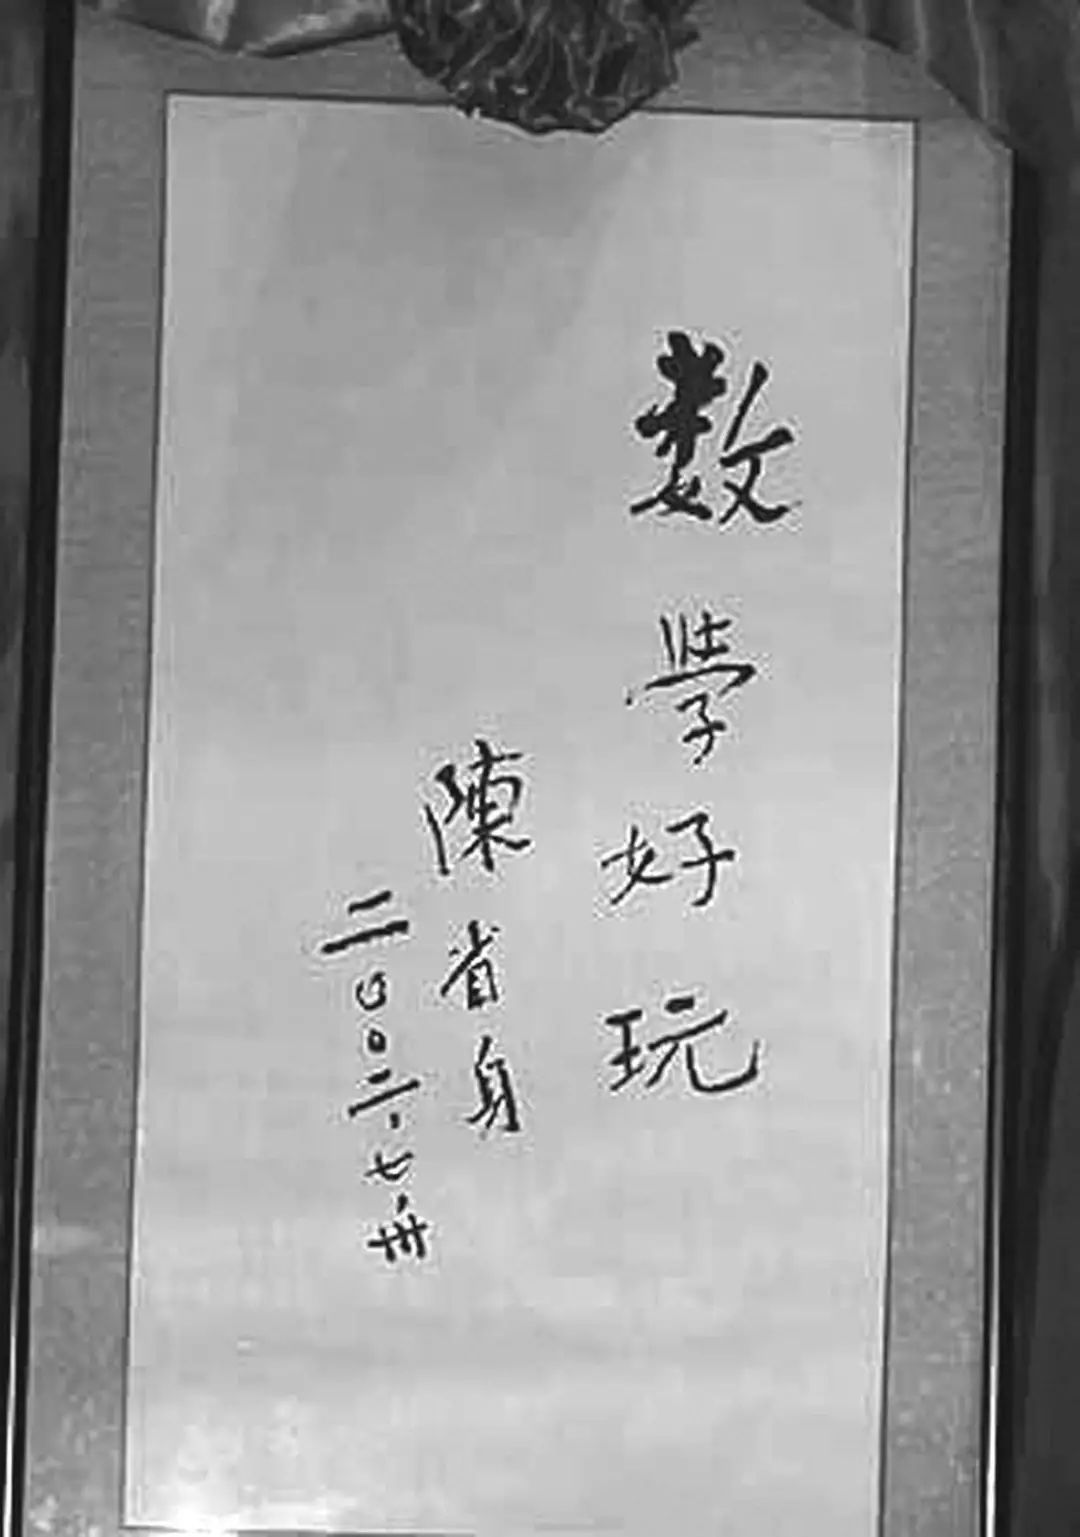 数學好玩
陳省身
二〇〇二.七,卅